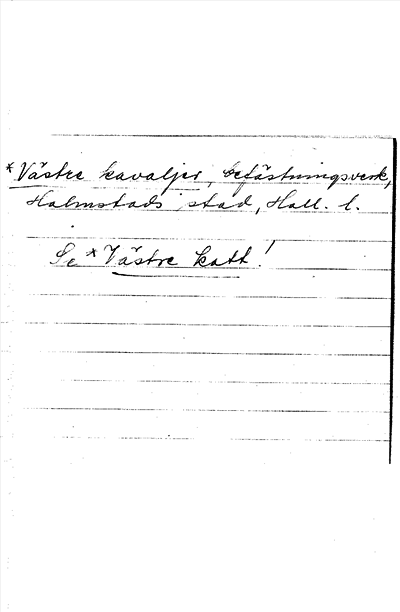 *Västre kavaljer, befästningsverk,
Halmstads stad, Hall. l.
Se *Västre katt!